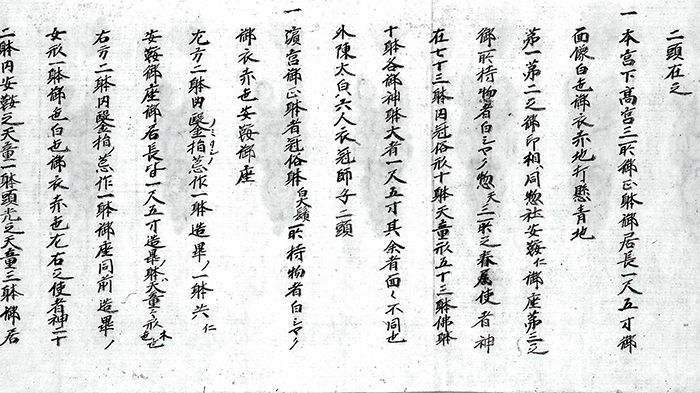 二頭在之
一本宮下髙宮三所御正躰御居長一尺五寸御
面像白也御衣赤地打懸青地
第一第二之御印相同惣社安鞍仁御座第三之
御所持物者白シマク惣天二所之眷属使者神
在七十三躰内冠俗形十躰天童形五十三躰佛躰
十躰各御神躰大者一尺五寸其余者面〻不同也
外陳太白六人衣冠師子二頭
一濱宮御正躰者冠俗躰白大鬚所持物者白シマク
御衣赤也安鞍御座
左方二躰内堅指忿作一躰造畢ノ一躰共仁
安鞍御座御居長一尺五寸造畢躰天童之形木也
右方二躰内堅指忿作一躰御座同前造畢ノ
女形一躰御色白也御衣赤也左右之使者神二十
二躰内安鞍之天童一躰頭光之天童三躰御居